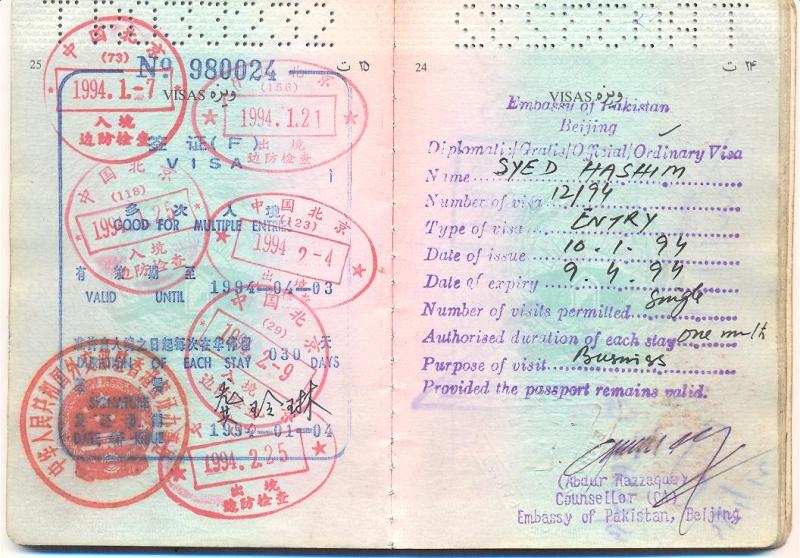 25
۲۵ ت
VISAS ویزه
№ 980024
中国北京
(73)
1994.1.-7
入境
边防检查
中国北京
(156)
1994.1.21
出境
边防检查
签证(F)
VISA
中国北京
(118)
入境
边防检查
多次入境
GOOD FOR MULTIPLE ENTRIES
中国北京
(123)
1994 2-4
出境
有效期至
1994-04-03
VALID UNTIL
中国北京
(29)
1994.2-9
自入境之日起每次在华停留 030 天
DURATION OF EACH STAY DAYS
SIGNATURE
1994-01-04
DATE OF ISSUE
中华人民共和国
1994.2.25
出境
边防检查
24
۲۴ ت
VISAS ویزه
Embassy of Pakistan
Beijing
Diplomatic/Gratis/Official/Ordinary Visa
Name SYED HASHIM
Number of visa 12/94
Type of visa ENTRY
Date of issue 10.1.94
Date of expiry 9.4.94
Number of visits permitted Single
Authorised duration of each stay one month
Purpose of visit Business
Provided the passport remains valid.
(Abdur Razzaque)
Counsellor (CA)
Embassy of Pakistan, Beijing